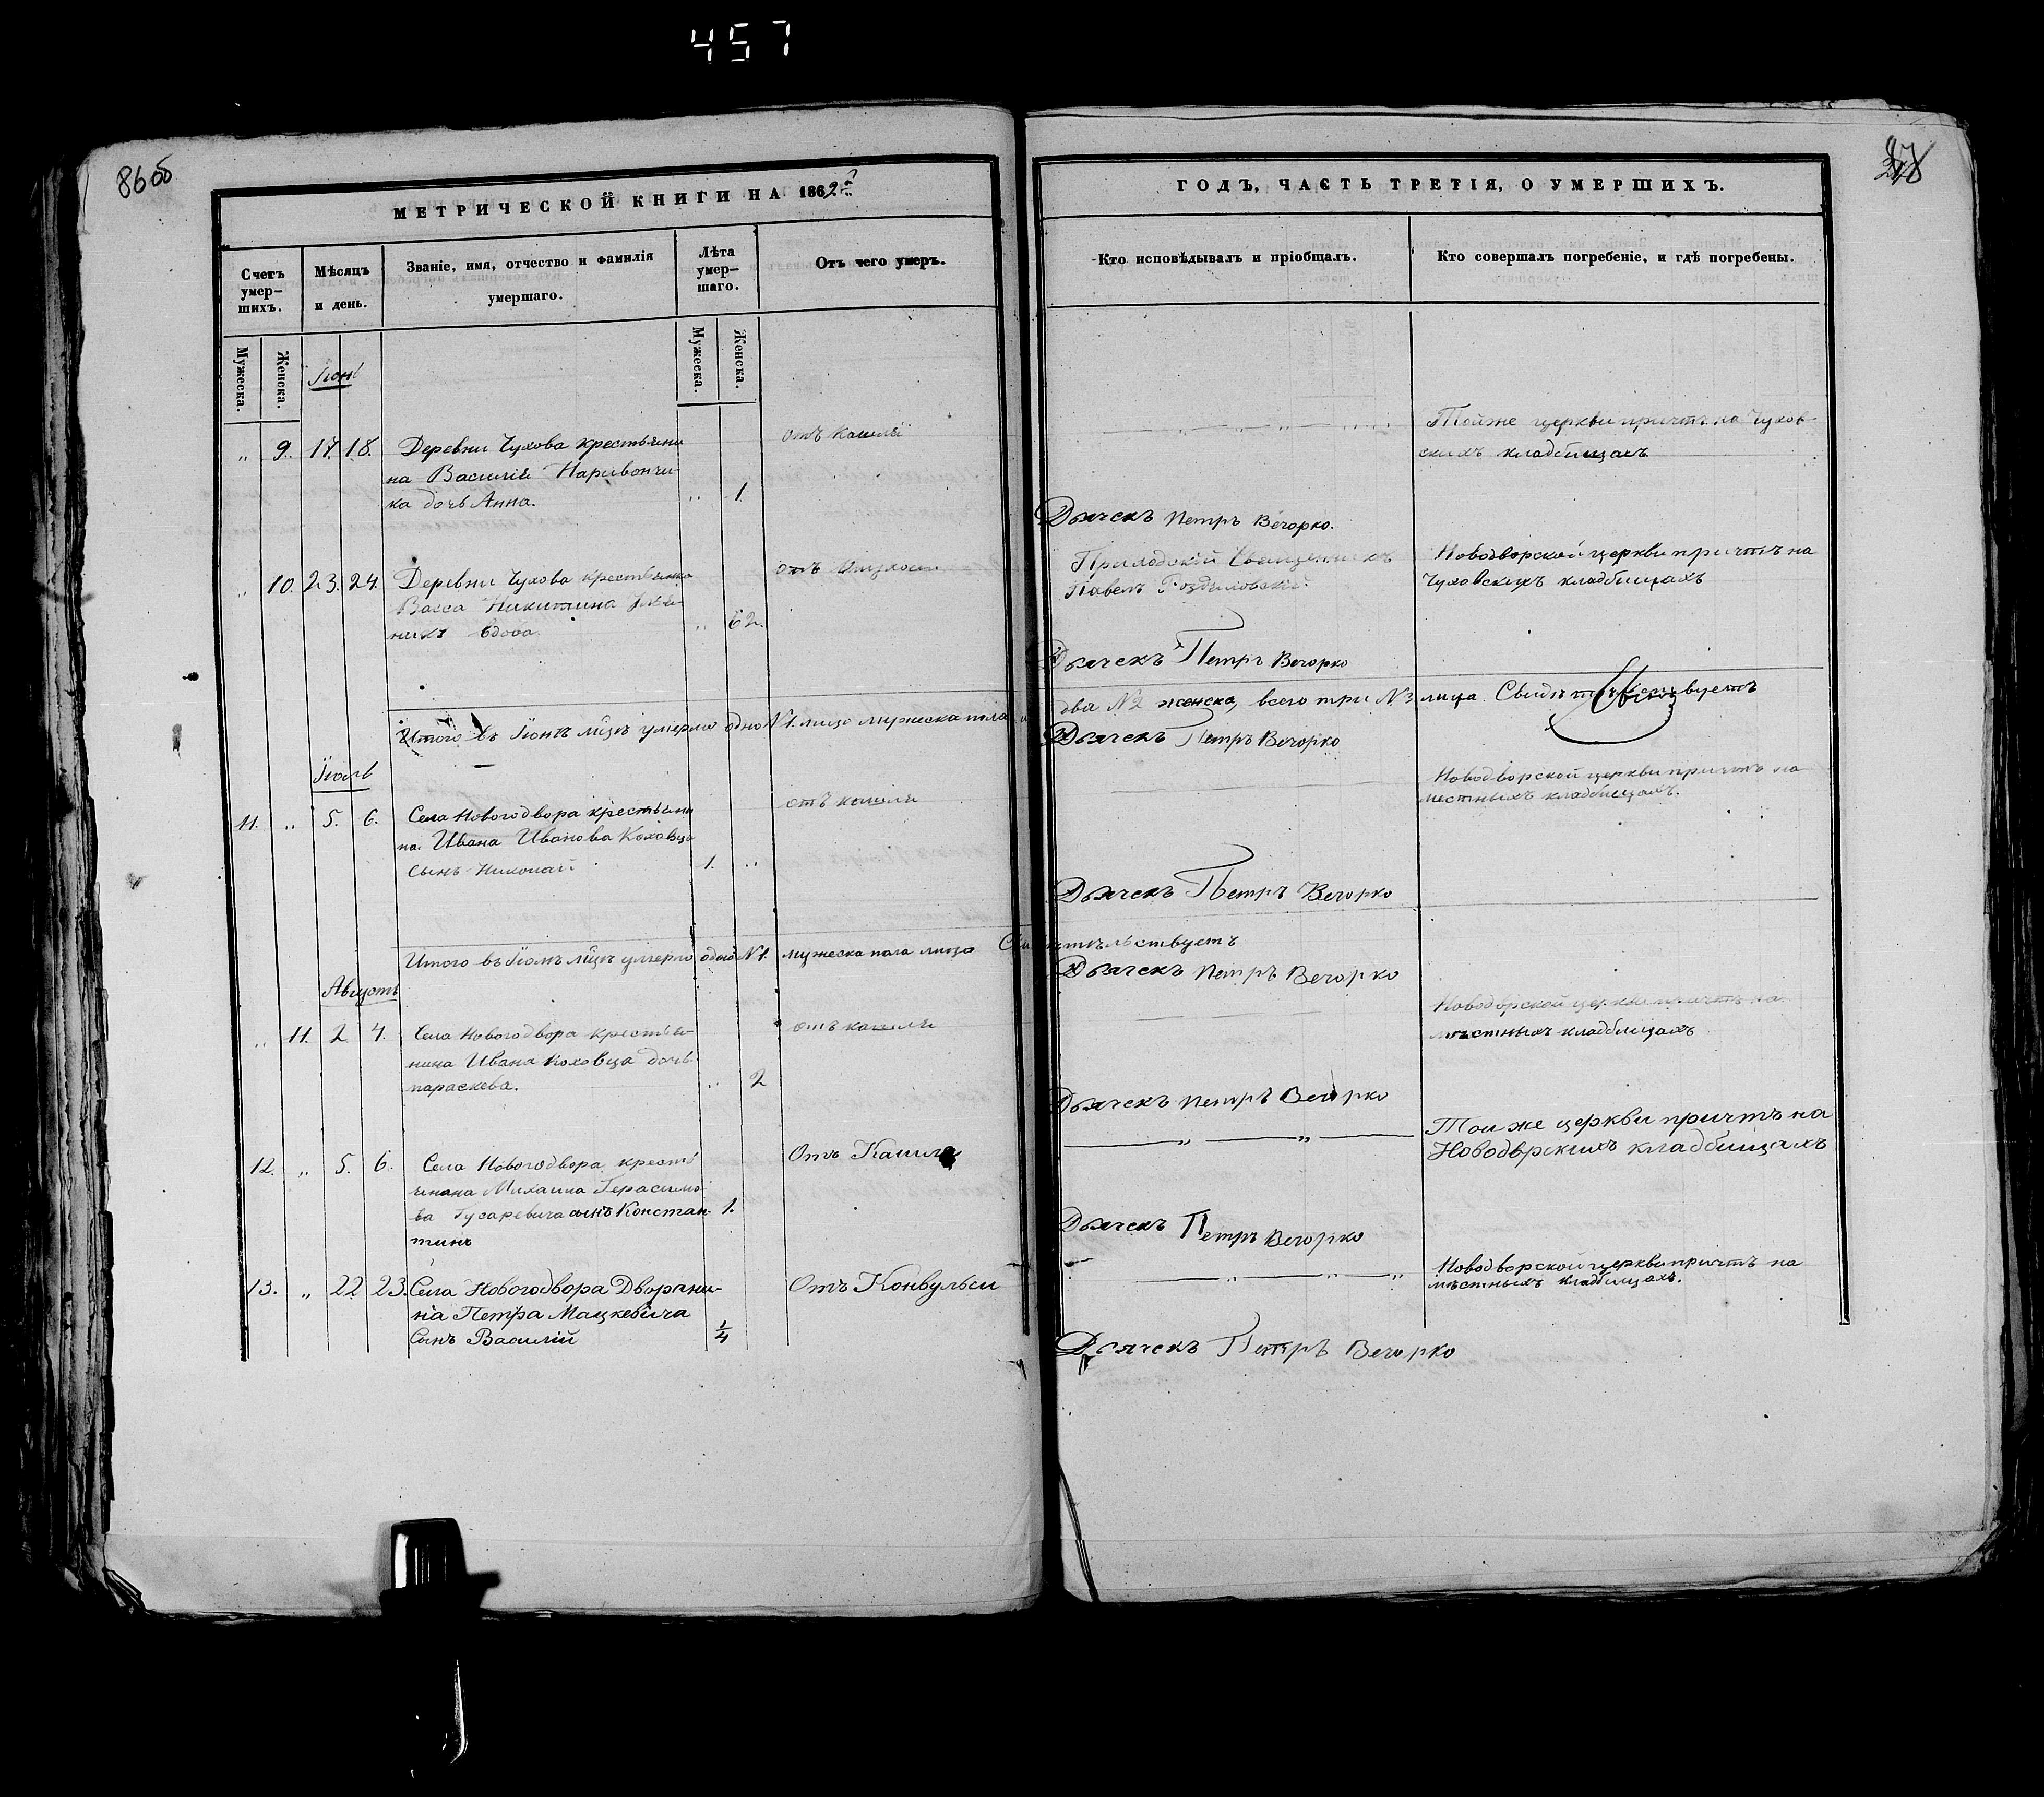 457
86 об
МЕТРИЧЕСКОЙ КНИГИ НА 1862й
ГОДЪ, ЧАСТЬ ТРЕТІЯ, О УМЕРШИХЪ.
Счетъ умер-шихъ.
Мѣсяцъ и день.
Званіе, имя, отчество и фамилія умершаго.
Лѣта умер-шаго.
Отъ чего умеръ.
Кто исповѣдывалъ и пріобщалъ.
Кто совершалъ погребеніе, и гдѣ погребены.
Мужеска.
Женска.
Мужеска.
Женска.
Іюнь
„ 9. 17. 18. Деревни Чухова крестьяни-
на Василія Наривончи-
ка дочь Анна. „ 1.
отъ кашля
Тойже церкви причтъ на Чухов-
скихъ кладбищахъ
Дьячекъ Петръ Вечорко.
„ 10. 23. 24. Деревни Чухова крестьянка
Васса Никитина
вдова. „ 62.
отъ
Приходскій Священникъ
Павелъ
Новодворской церкви причтъ на
Чуховскихъ кладбищахъ
Дьячекъ Петръ Вечорко
Итого въ Іюнѣ мцѣ умерло одно №1. лицо мужеска пола и два №2 женска, всего три №3 лица. Свидѣтельствуетъ
Дьячекъ Петръ Вечорко
Іюль
11. „ 5. 6. Села Новогодвора крестьяни-
на Ивана Иванова Коховца
сынъ Николай 1. „
отъ кашля
Новодворской церкви причтъ на
местныхъ кладбищахъ.
Дьячекъ Петръ Вечорко
Итого въ Іюлѣ мцѣ умерло одно №1. мужеска пола лицо Свидѣтельствуетъ
Дьячекъ Петръ Вечорко
Августъ
„ 11. 2 4. Села Новогодвора крестья-
нина Ивана Коховца дочь
параскева. „ 2
отъ кашля
Новодорской церкви причтъ на
мѣстныхъ кладбищахъ
Дьячекъ Петръ Вечорко
12. „ 5. 6. Села Новогодвора кресть
янина Михаила Герасимо-
ва Гусаревича сынъ Констан- 1.
тинъ
Отъ Кашля
Той же церкви причтъ на
Новодврскихъ кладбищахъ
Дьячекъ Петръ Вечорко
13. „ 22 23. Села Новогодвора Дворяни-
на Петра Мацкевича
Сынъ Василій 1/4
Отъ Конвульси
Новодворской церкви причтъ на
мѣстныхъ кладбищахъ.
Дьячекъ Петръ Вечорко